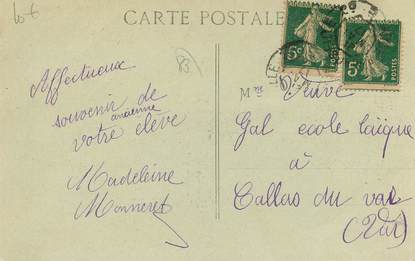 lot
CARTE POSTALE
83
5c
POSTES
5c
POSTES
Affectueux
souvenir de
ancienne
votre élève
Madeleine
Monneret
Mme Veuve
Gal école laïque
à
Callas du var
(Var)